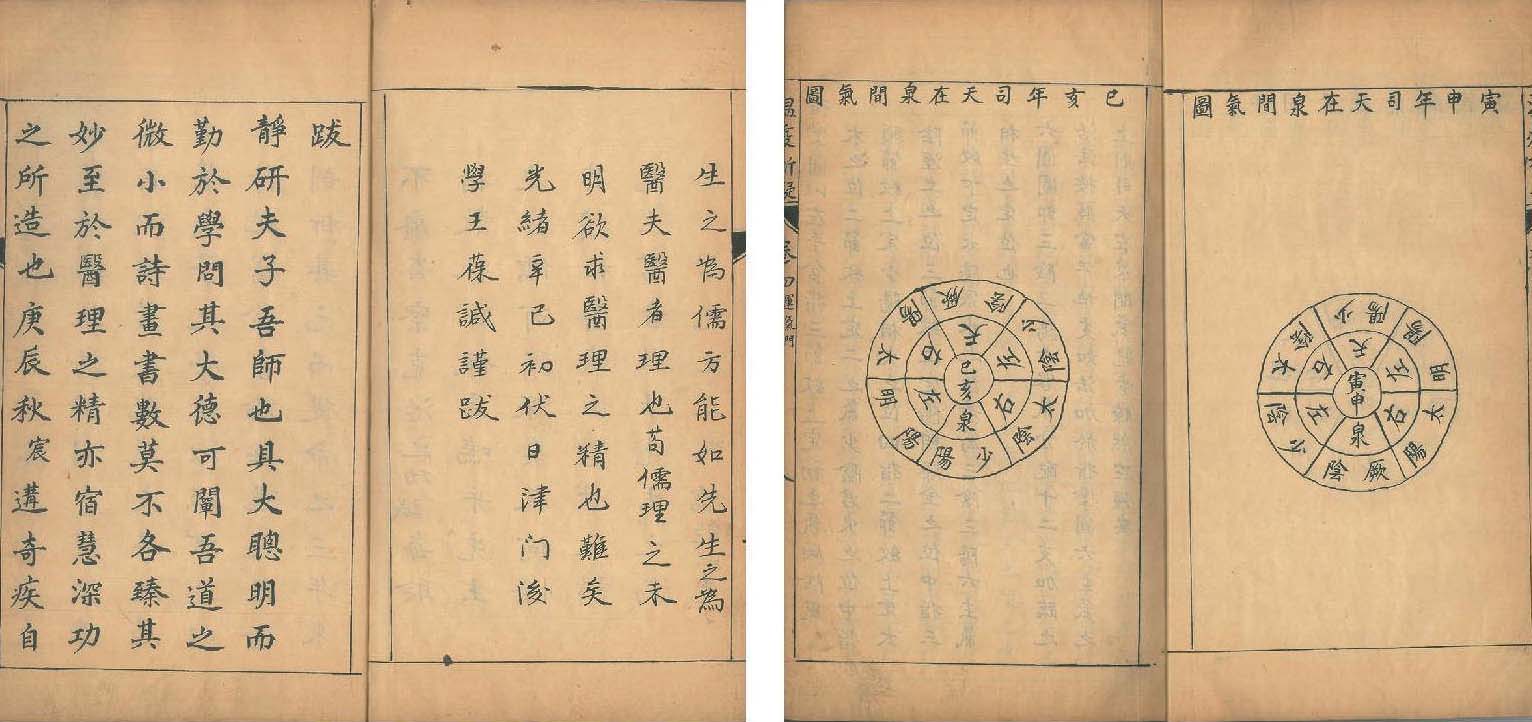 生之為儒方能如先生之為
醫夫醫者理也茍儒理之未
明欲求醫理之精也難矣
光緒辛巳初伏日津门後
學王葆諴謹跋
跋
靜研夫子吾師也具大聰明而
勤於學問其大德可闡吾道之
微小而詩畫書數莫不各臻其
妙至於醫理之精亦宿慧深功
之所造也庚辰秋宸遘奇疾自
寅申年司天在泉間氣圖
寅申
天
左
右
泉
左
右
少陽
陽明
太陽
厥陰
少陰
太陰
巳亥年司天在泉間氣圖
巳亥
天
左
右
泉
左
右
厥陰
少陰
太陰
少陽
陽明
太陽
析疑
卷四運氣門